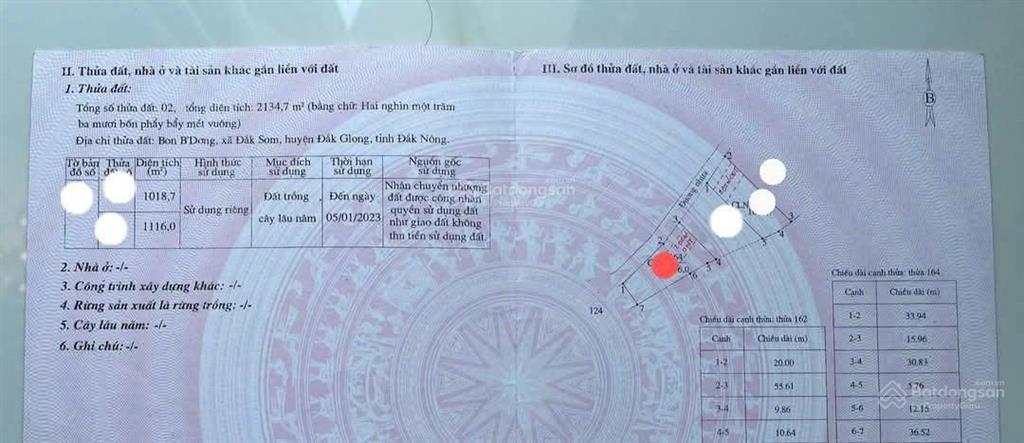 II. Thửa đất, nhà ở và tài sản khác gắn liền với đất
1. Thửa đất:
Tổng số thửa đất: 02, tổng diện tích: 2134,7 m² (bằng chữ: Hai nghìn một trăm
ba mươi bốn phẩy bẩy mét vuông)
Địa chỉ thửa đất: Bon B'Dơng, xã Đăk Som, huyện Đắk Glong, tỉnh Đắk Nông.
Tờ bản đồ số
Thửa
Diện tích (m²)
Hình thức sử dụng
Mục đích sử dụng
Thời hạn sử dụng
Nguồn gốc sử dụng
1018,7
1116,0
Sử dụng riêng
Đất trồng cây lâu năm
Đến ngày 05/01/2023
Nhận chuyển nhượng
đất được công nhận
quyền sử dụng đất
như giao đất không
thu tiền sử dụng đất.
2. Nhà ở: -/-
3. Công trình xây dựng khác: -/-
4. Rừng sản xuất là rừng trồng: -/-
5. Cây lâu năm: -/-
6. Ghi chú: -/-
III. Sơ đồ thửa đất, nhà ở và tài sản khác gắn liền với đất
B
Đường nhựa
2
CLN
3
4
3
3
2
6.0
3
4
6
1
7
124
Chiều dài cạnh thửa: thửa 162
Cạnh Chiều dài (m)
1-2 20.00
2-3 55.61
3-4 9.86
4-5 10.64
Chiều dài cạnh thửa: thửa 164
Cạnh Chiều dài (m)
1-2 33.94
2-3 15.96
3-4 30.83
4-5 5.76
5-6 12.15
6-7 36.52
Batdongsan
.com.vn
by PropertyGuru
Batdongsan